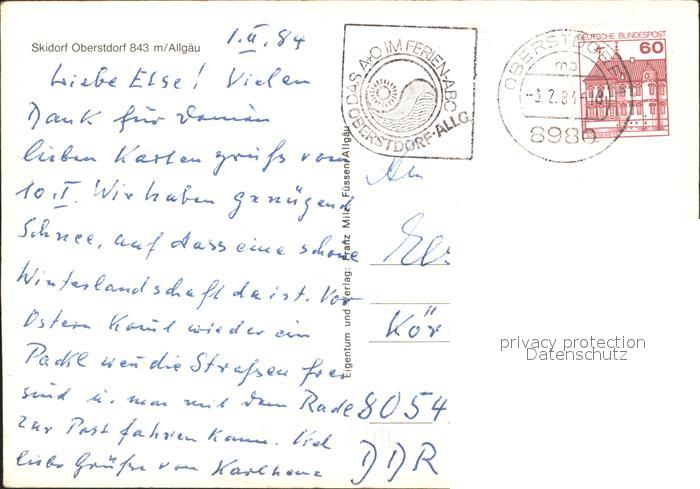 Skidorf Oberstdorf 843 m/Allgäu
1.II.84
Liebe Else! Vielen
Dank für Deinen
lieben Kartengruß vom
10.I. Wir haben genügend
Schnee, auf dass eine schöne
Winterlandschaft da ist. Vor
Ostern kommt wieder ein
Packl wen die Straßen frei
sind u. man mit dem Rade
zur Post fahren kann. Viel
liebe Grüße von Karlheinz
Eigentum und Verlag: Franz Milz, Füssen/Allgäu
DAS A+O IM FERIEN-ABC
OBERSTDORF·ALLG.
OBERSTDORF
mb
-3.2.84-18
8980
DEUTSCHE BUNDESPOST
60
An
Kör
8054
DDR
privacy protection
Datenschutz